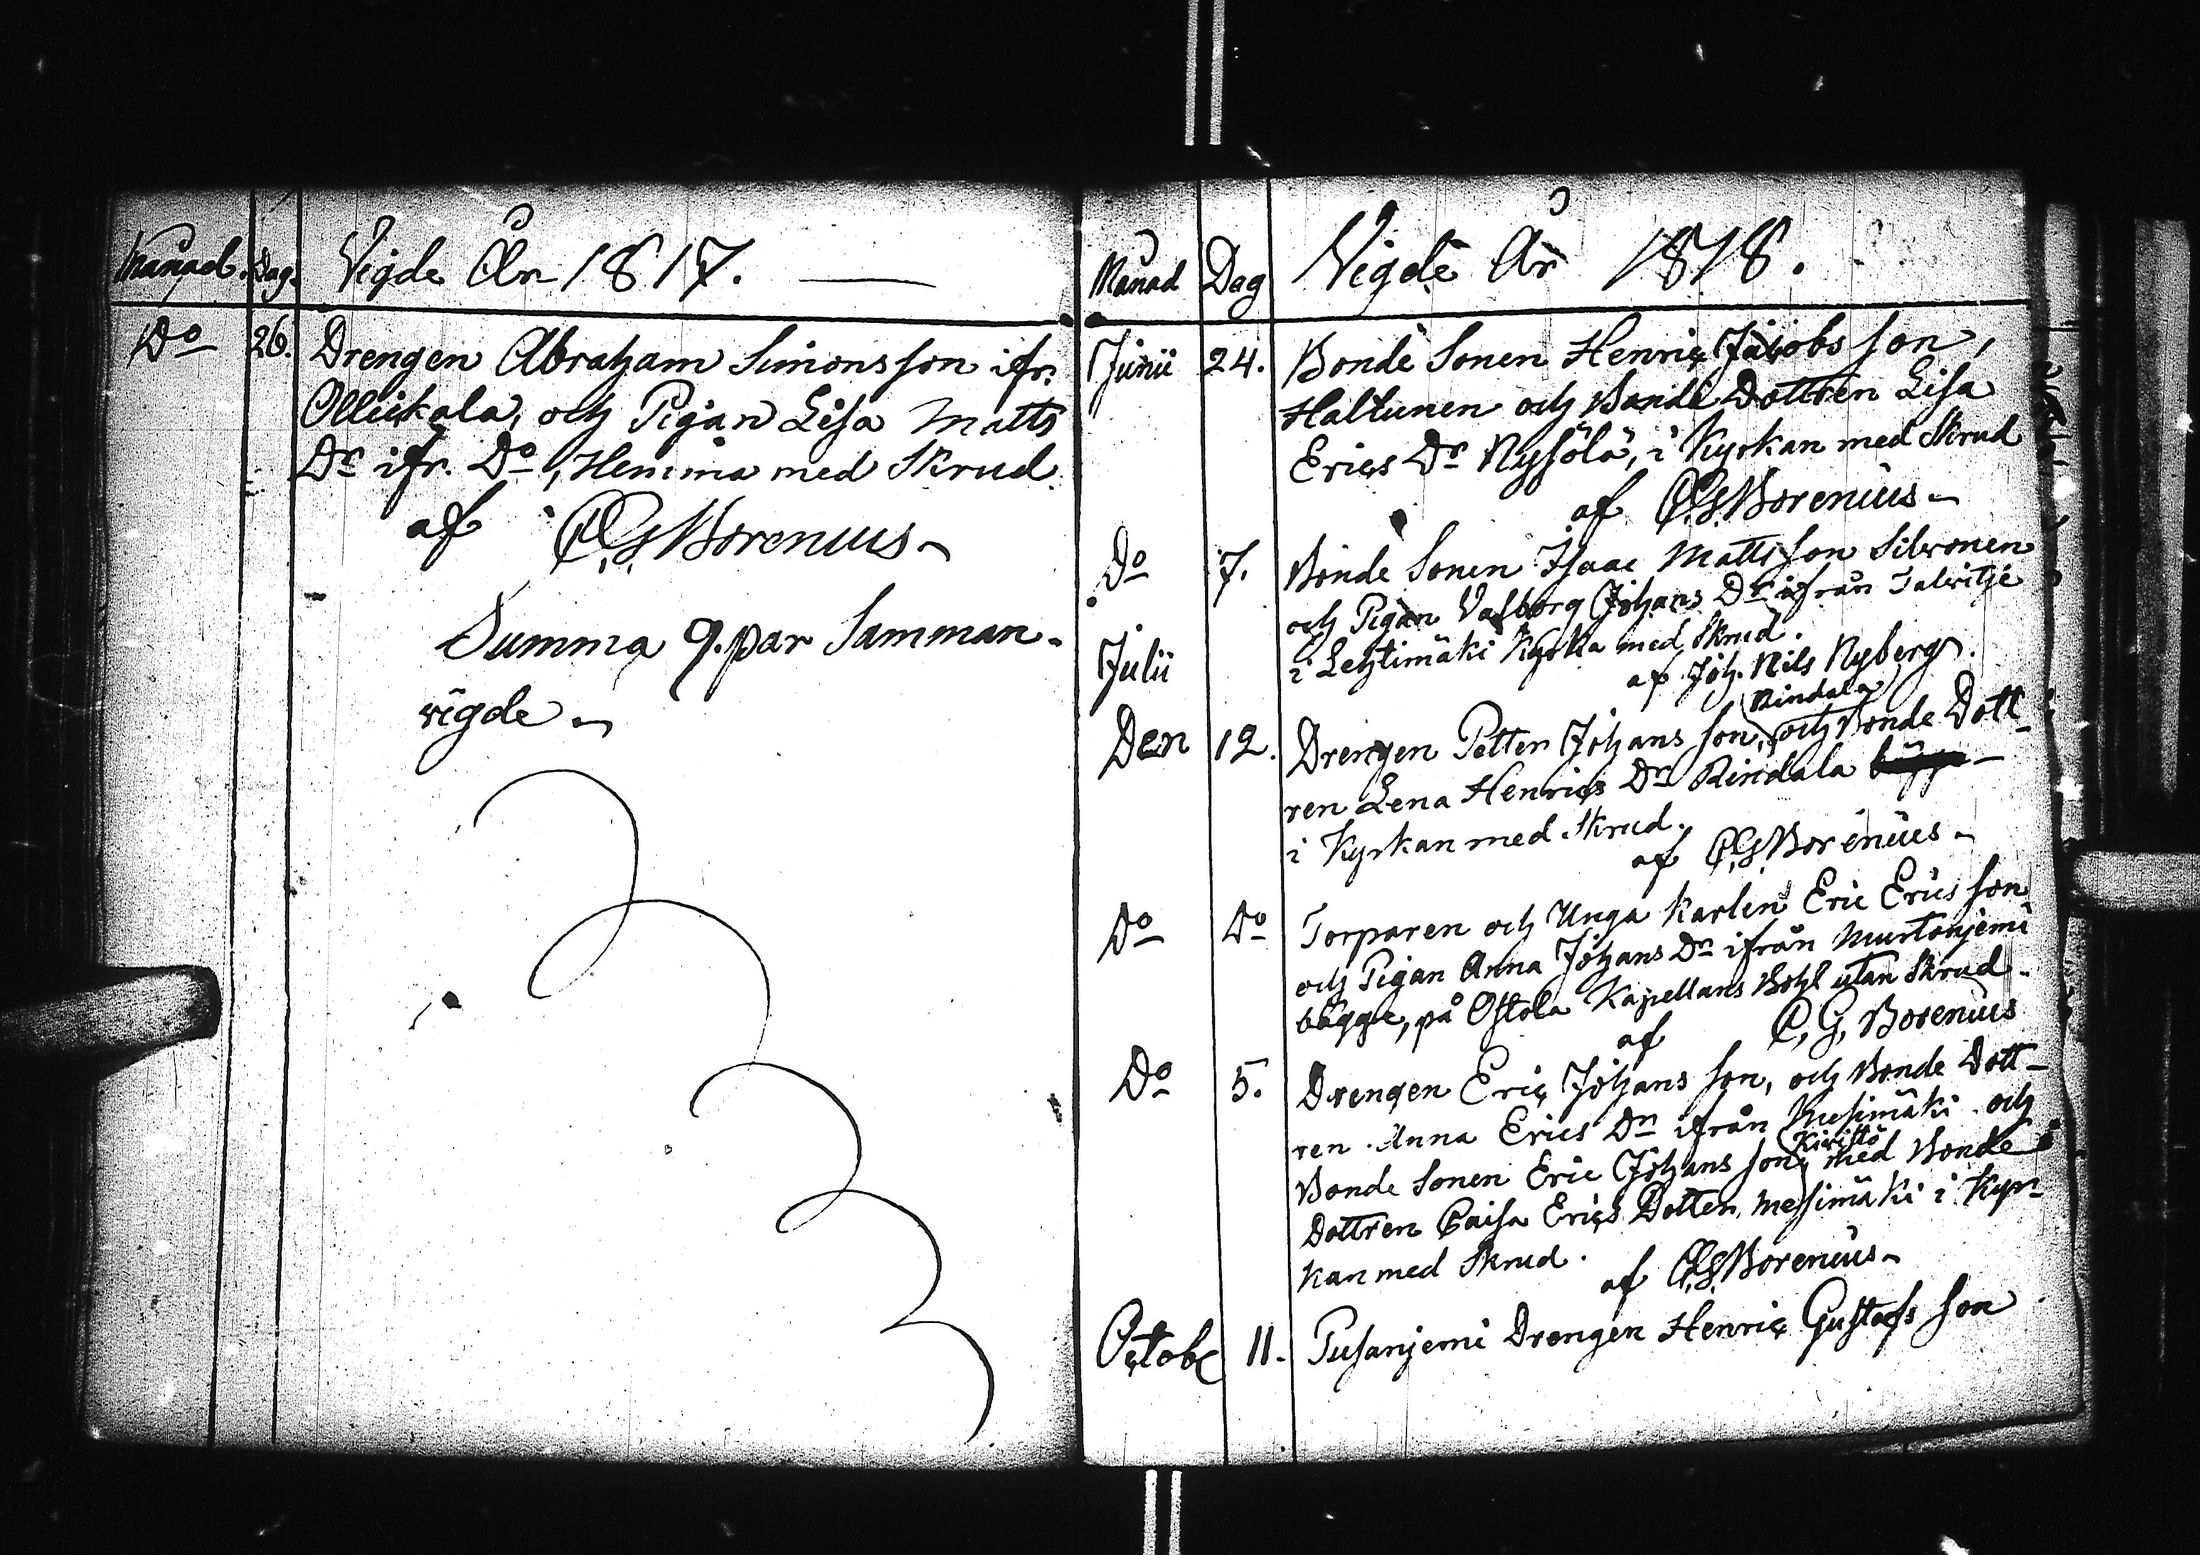 Månad. Dag. Vigde År 1817.
Do 26. Drengen Abraham Simonsson ifr.
Ollickala, och Pigan Lisa Matts
Dr ifr. Do, Hemma med Skrud
af C.G. Borenius
Summa 9. par Samman-
vigde
Månad Dag Vigde År 1818.
Junii 24. Bonde Sonen Henric Jacobs son,
Haltunen och Bonde Dottren Lisa
Erics Dr Nysölä, i Kyrkan med Skrud
af C.G. Borenius
Do 7. Bonde Sonen Isaac Matts son Silvonen
och Pigan Valborg Johans Dr ifrån Talvitje
Julii i Lehtimäki Kyrka med Skrud.
af Joh. Nils Nyberg.
Rindala
Den 12. Drengen Petter Johans son, och Bonde Dott-
ren Lena Henrics Dr Rindala
i Kyrkan med Skrud.
af C.G. Borenius
Do Do Torparen och Unga Karlen Eric Erics son
och Pigan Anna Johans Dr ifrån Murtonjemi
bägge, på Ostola Kapellans Bohl utan Skrud.
af C. G. Borenius
Do 5. Drengen Eric Johans son, och Bonde Dott-
ren Anna Erics Dr ifrån Mesimäki och
Kivistö
Bonde Sonen Eric Johans son med Bonde
Dottren Caisa Erics Dotter Mesimäki i Kyr-
kan med Skrud.
af C.G. Borenius
Octobr 11. Pusanjemi Drengen Henric Gustafs son